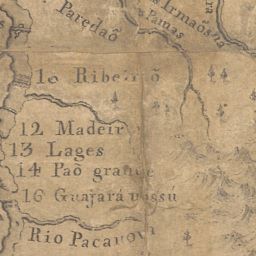 Paredaõ
Irmaõs
Pamas
10 Ribeiraõ
12 Madeir
13 Lages
14 Paõ grande
16 Guajará
Rio Pacanova